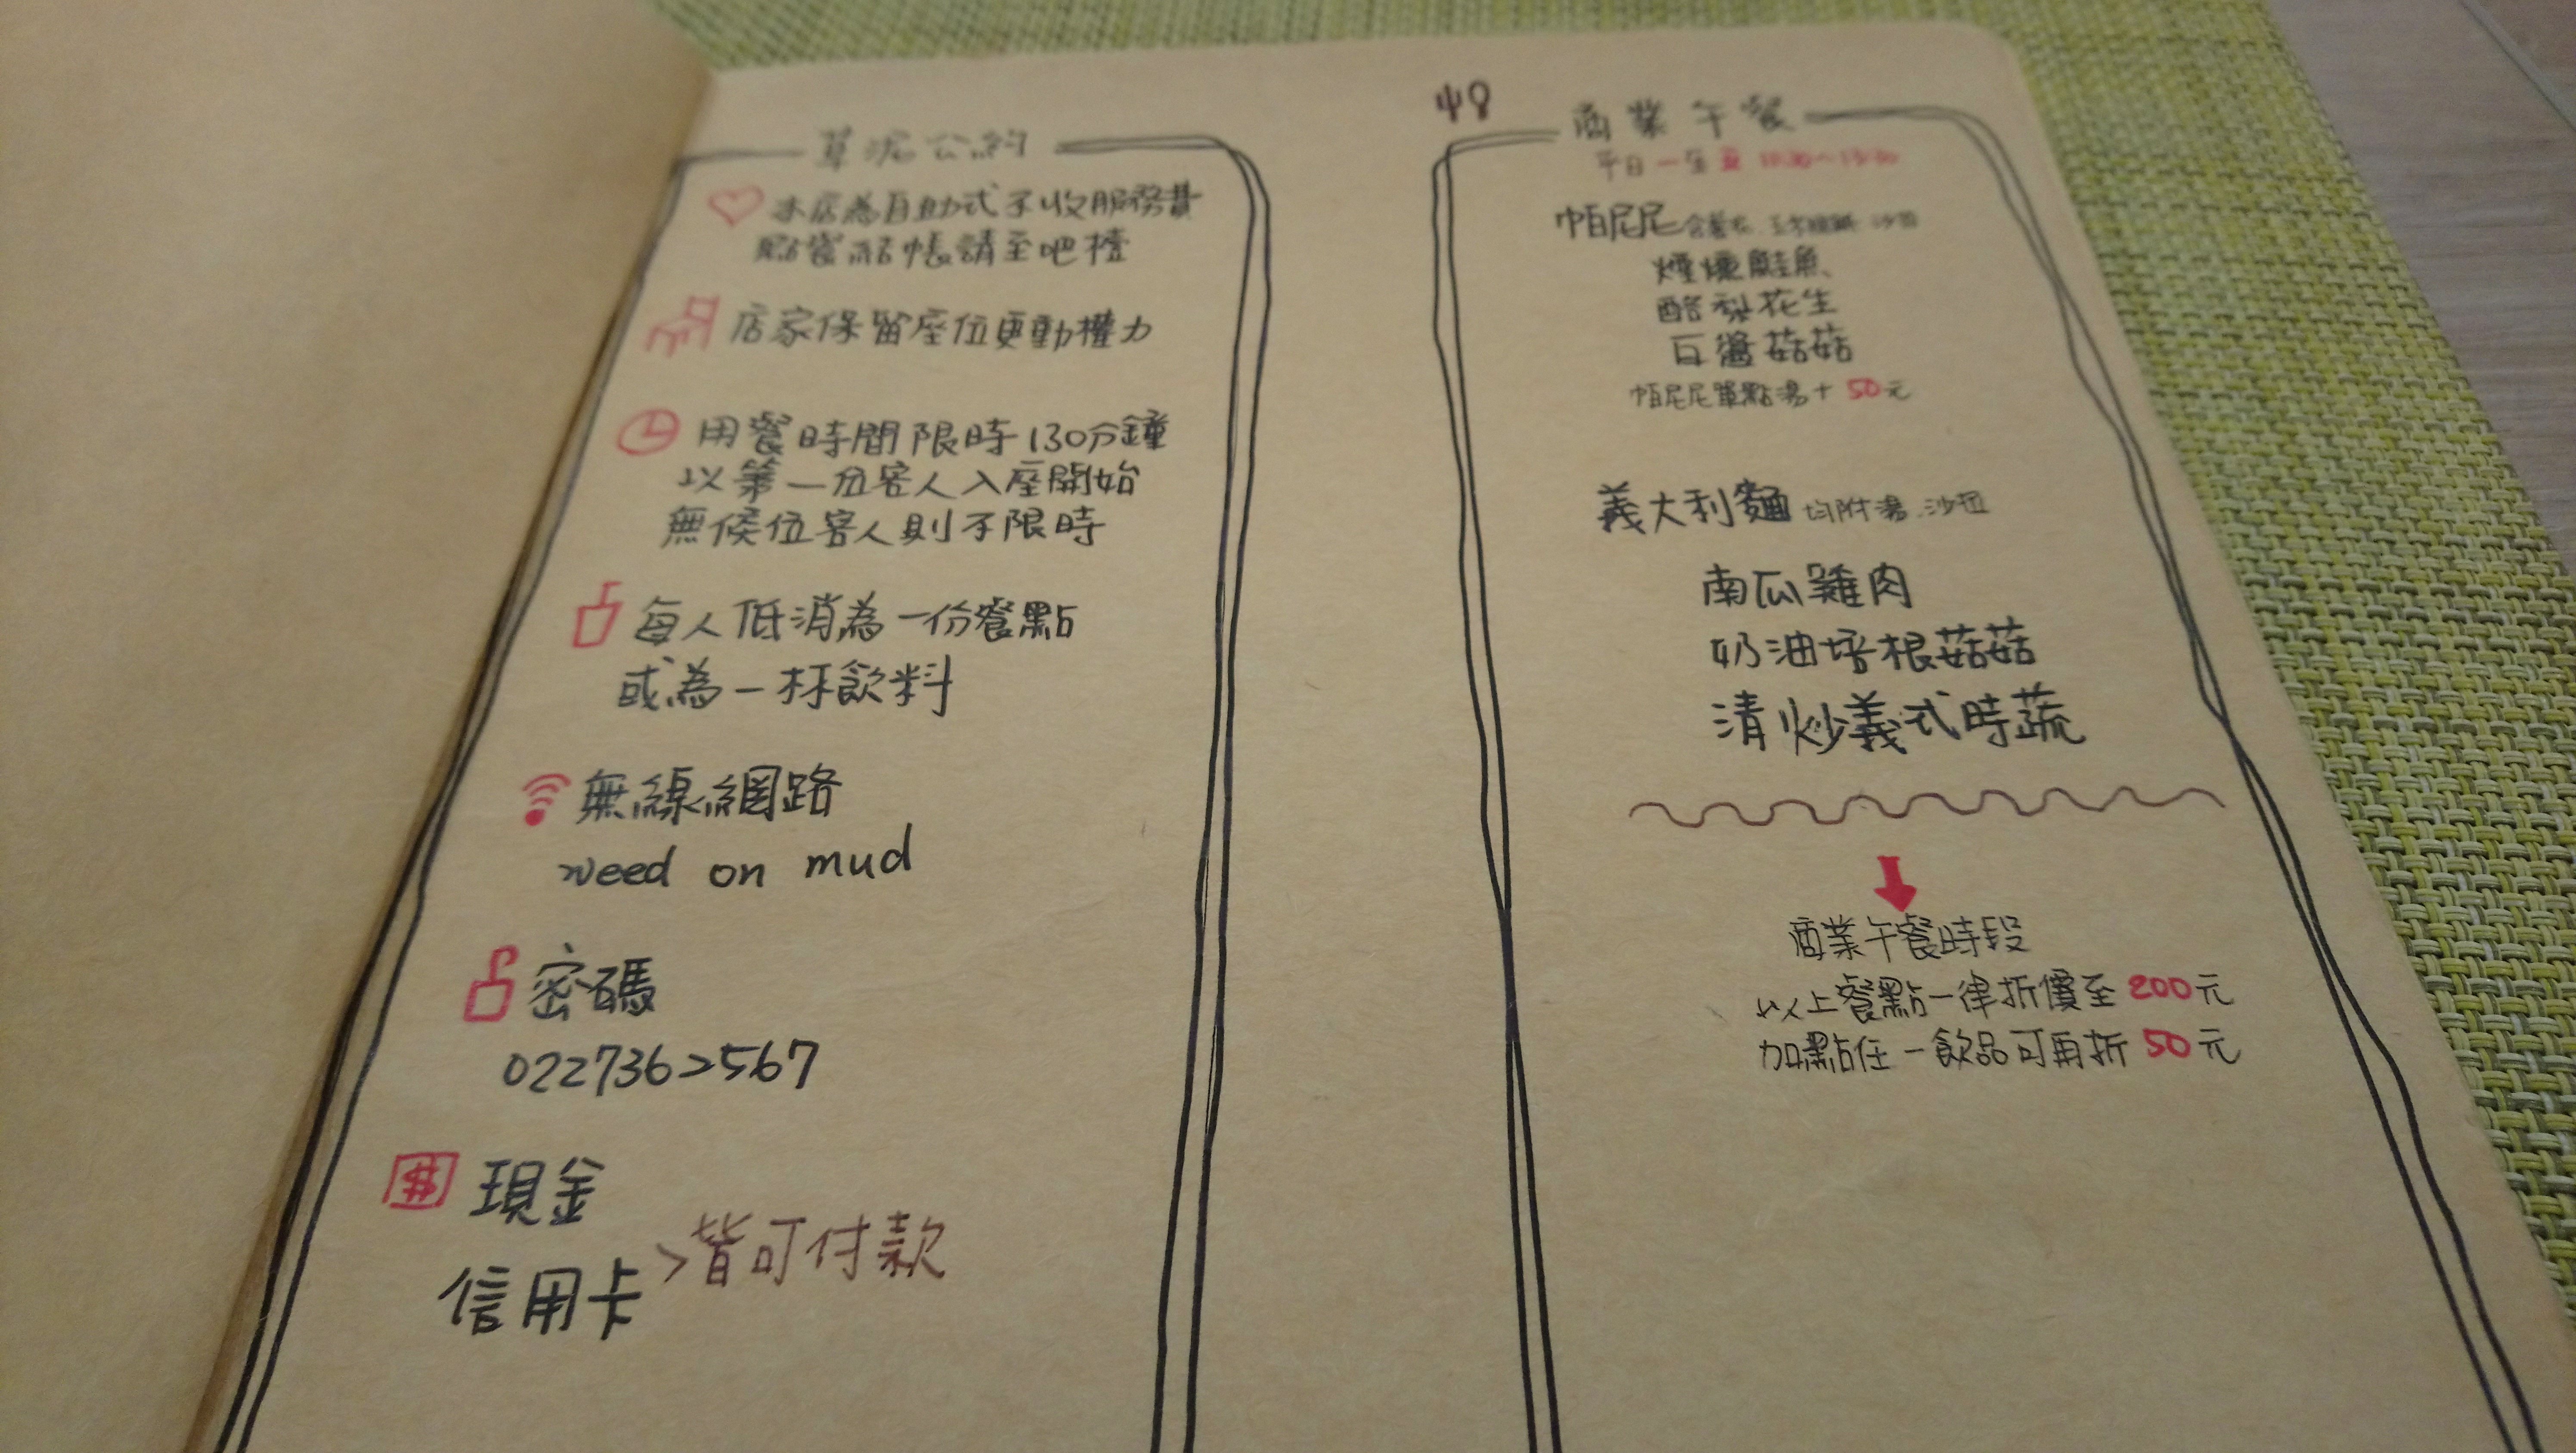 草泥公約
本店為自助式不收服務費
點餐結帳請至吧檯
店家保留座位更動權力
用餐時間限時130分鐘
以第一位客人入座開始
無候位客人則不限時
每人低消為一份餐點
或為一杯飲料
無線網路
weed on mud
密碼
0227362567
$ 現金
信用卡
>皆可付款
商業午餐
平日一至五
帕尼尼 沙拉
煙燻鮭魚
酪梨花生
豆醬菇菇
帕尼尼單點湯+50元
義大利麵 均附湯.沙拉
南瓜雞肉
奶油培根菇菇
清炒義式時蔬
商業午餐時段
以上餐點一律折價至200元
加點任一飲品可再折50元